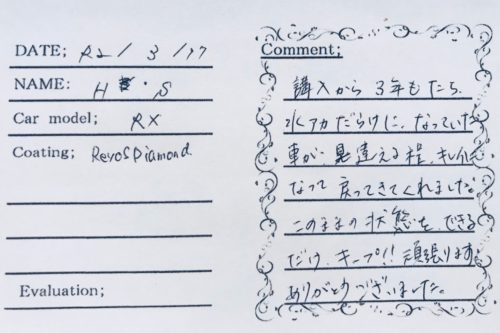 DATE; R2 / 3 / 17
NAME; H . S
Car model; RX
Coating; Revos Diamond
Evaluation;
Comment;
購入から 3年もたち、
水アカだらけに、なっていた
車が、見違える程、キレイに
なって 戻ってきてくれました。
このままの状態を、できる
だけ、キープ!! 頑張ります。
ありがとうございました。